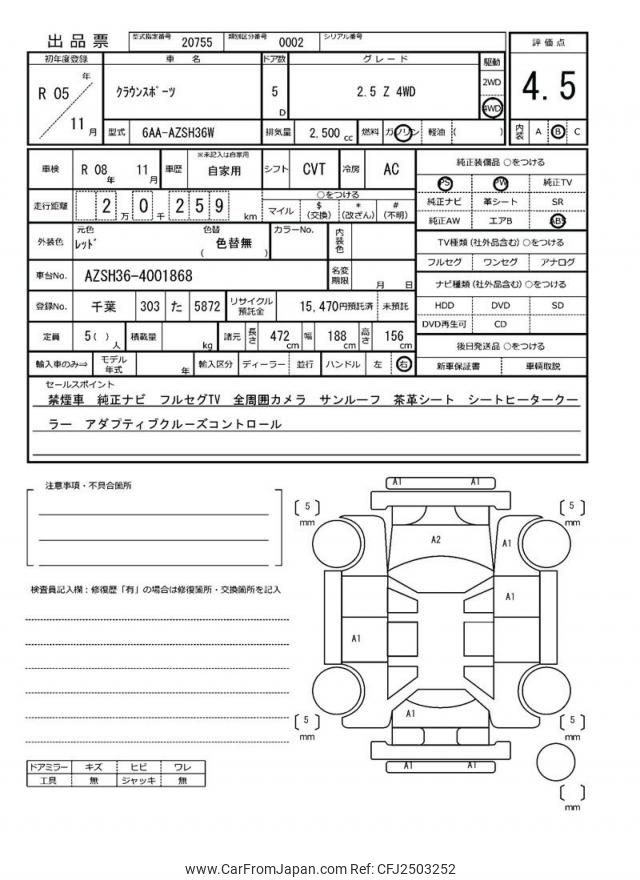 出品票 型式指定番号 20755 類別区分番号 0002 シリアル番号
評価点
4.5
初年度登録 車名 ドア数 グレード 駆動
R 05 年 11 月
クラウンスポーツ 5 D 2.5 Z 4WD
2WD
4WD
型式 6AA-AZSH36W 排気量 2,500 cc 燃料 ガソリン 軽油 ( )
内装 A B C
車検 R 08 年 11 月 車歴 ※未記入は自家用 自家用 シフト CVT 冷房 AC
走行距離 2 万 0 千 2 5 9 km
○をつける
マイル $ (交換) * (改ざん) # (不明)
外装色 元色 レッド 色替 色替無 ( ) カラーNo. 内装色
車台No. AZSH36-4001868 名変期限 月 日
登録No. 千葉 303 た 5872 リサイクル預託金 15,470円預託済 未預託
定員 5( ) 人 積載量 kg 諸元 長さ 472 cm 幅 188 cm 高さ 156 cm
輸入車のみ⇒ モデル年式 年 輸入区分 ディーラー 並行 ハンドル 左 右
純正装備品 ○をつける
PS PW 純正TV
純正ナビ 革シート SR
純正AW エアB ABS
TV種類 (社外品含む) ○をつける
フルセグ ワンセグ アナログ
ナビ種類 (社外品含む) ○をつける
HDD DVD SD
DVD再生可 CD
後日発送品 ○をつける
新車保証書 車輌取説
セールスポイント
禁煙車 純正ナビ フルセグTV 全周囲カメラ サンルーフ 茶革シート シートヒータークー
ラー アダプティブクルーズコントロール
注意事項・不具合箇所
検査員記入欄：修復歴「有」の場合は修復箇所・交換箇所を記入
ドアミラー キズ ヒビ ワレ
工具 無 ジャッキ 無
A1 A1
5 mm 5 mm
A2 A1
A1
A1
A1
5 mm 5 mm
A1 A1
mm
www.CarFromJapan.com Ref: CFJ2503252